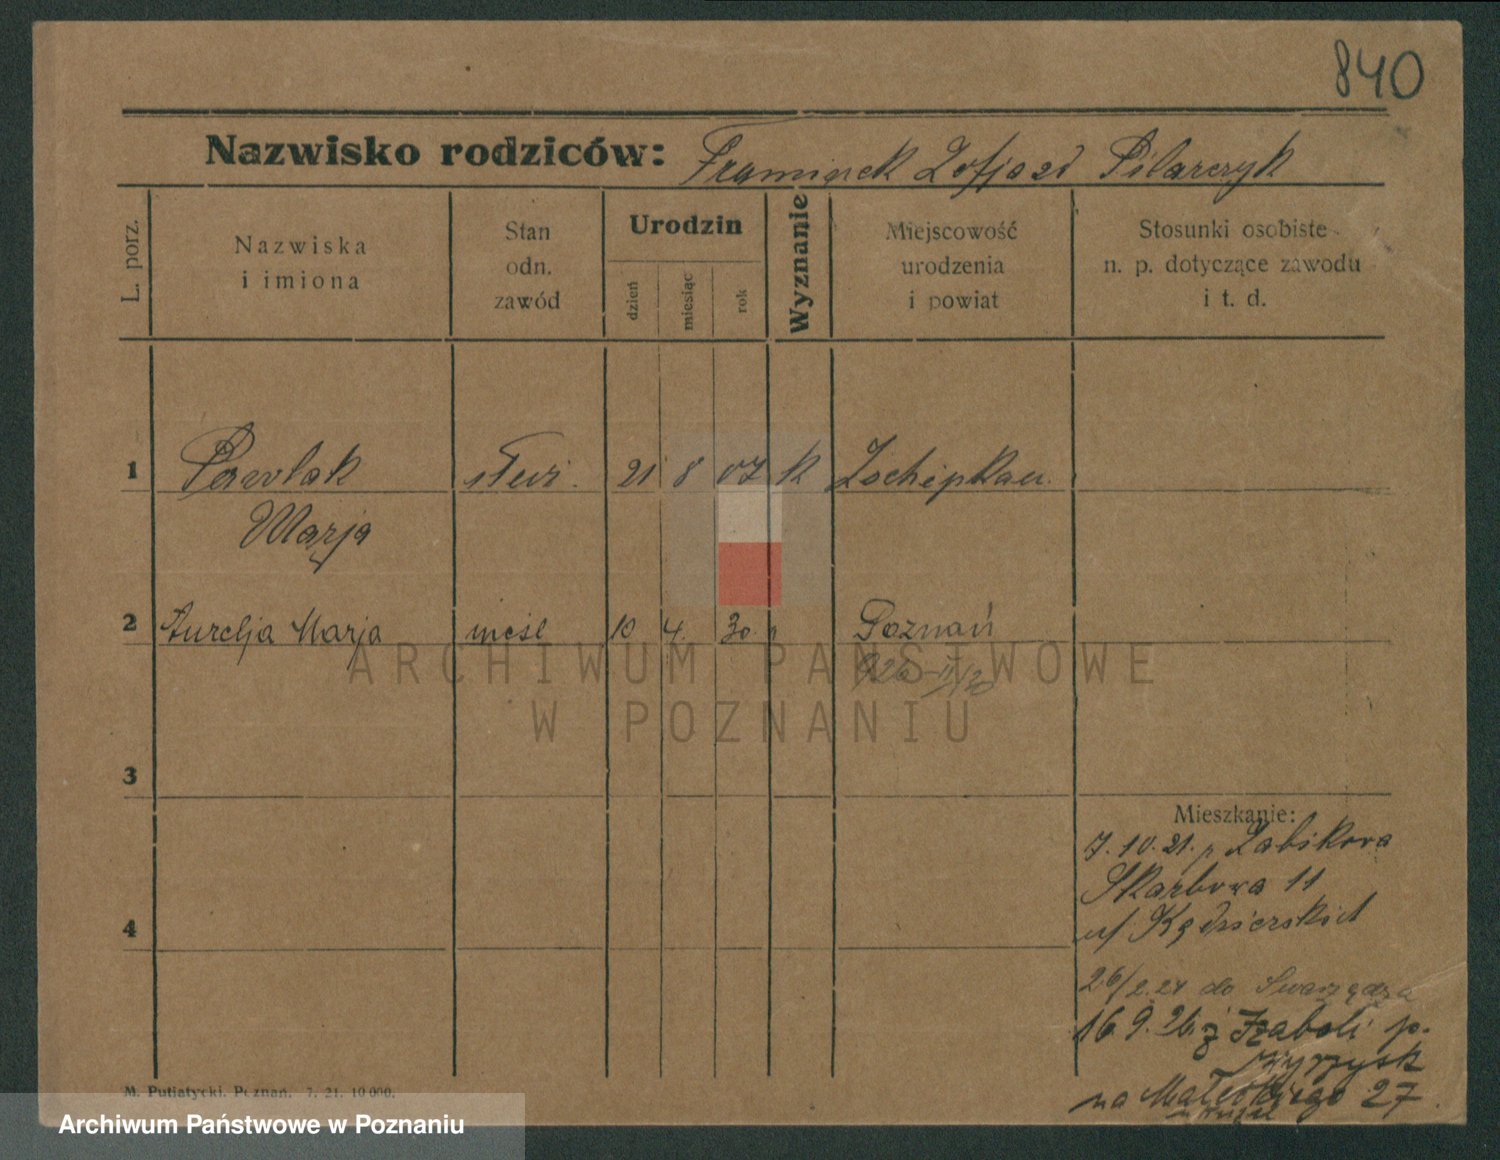 840
Nazwisko rodziców: Zofja zd Pilarczyk
L. porz.
Nazwiska
i imiona
Stan
odn.
zawód
Urodzin
dzień
miesiąc
rok
Wyznanie
Miejscowość
urodzenia
i powiat
Stosunki osobiste
n. p. dotyczące zawodu
i t. d.
1 Pawlak 21 8 07 k
Marja
2 Aurelja Marja 10 4. 30. Poznań
ARCHIWUM PAŃSTWOWE
W POZNANIU
3
Mieszkanie:
7.10.21. p Żabikowa
Skarbowa 11
4
26/2.24 do Swarzędza
16.9.26. z Izabeli p.
Wyrzysk
na Małeckiego 27
M. Putiatycki, Poznań. 7. 21. 10 000.
Archiwum Państwowe w Poznaniu